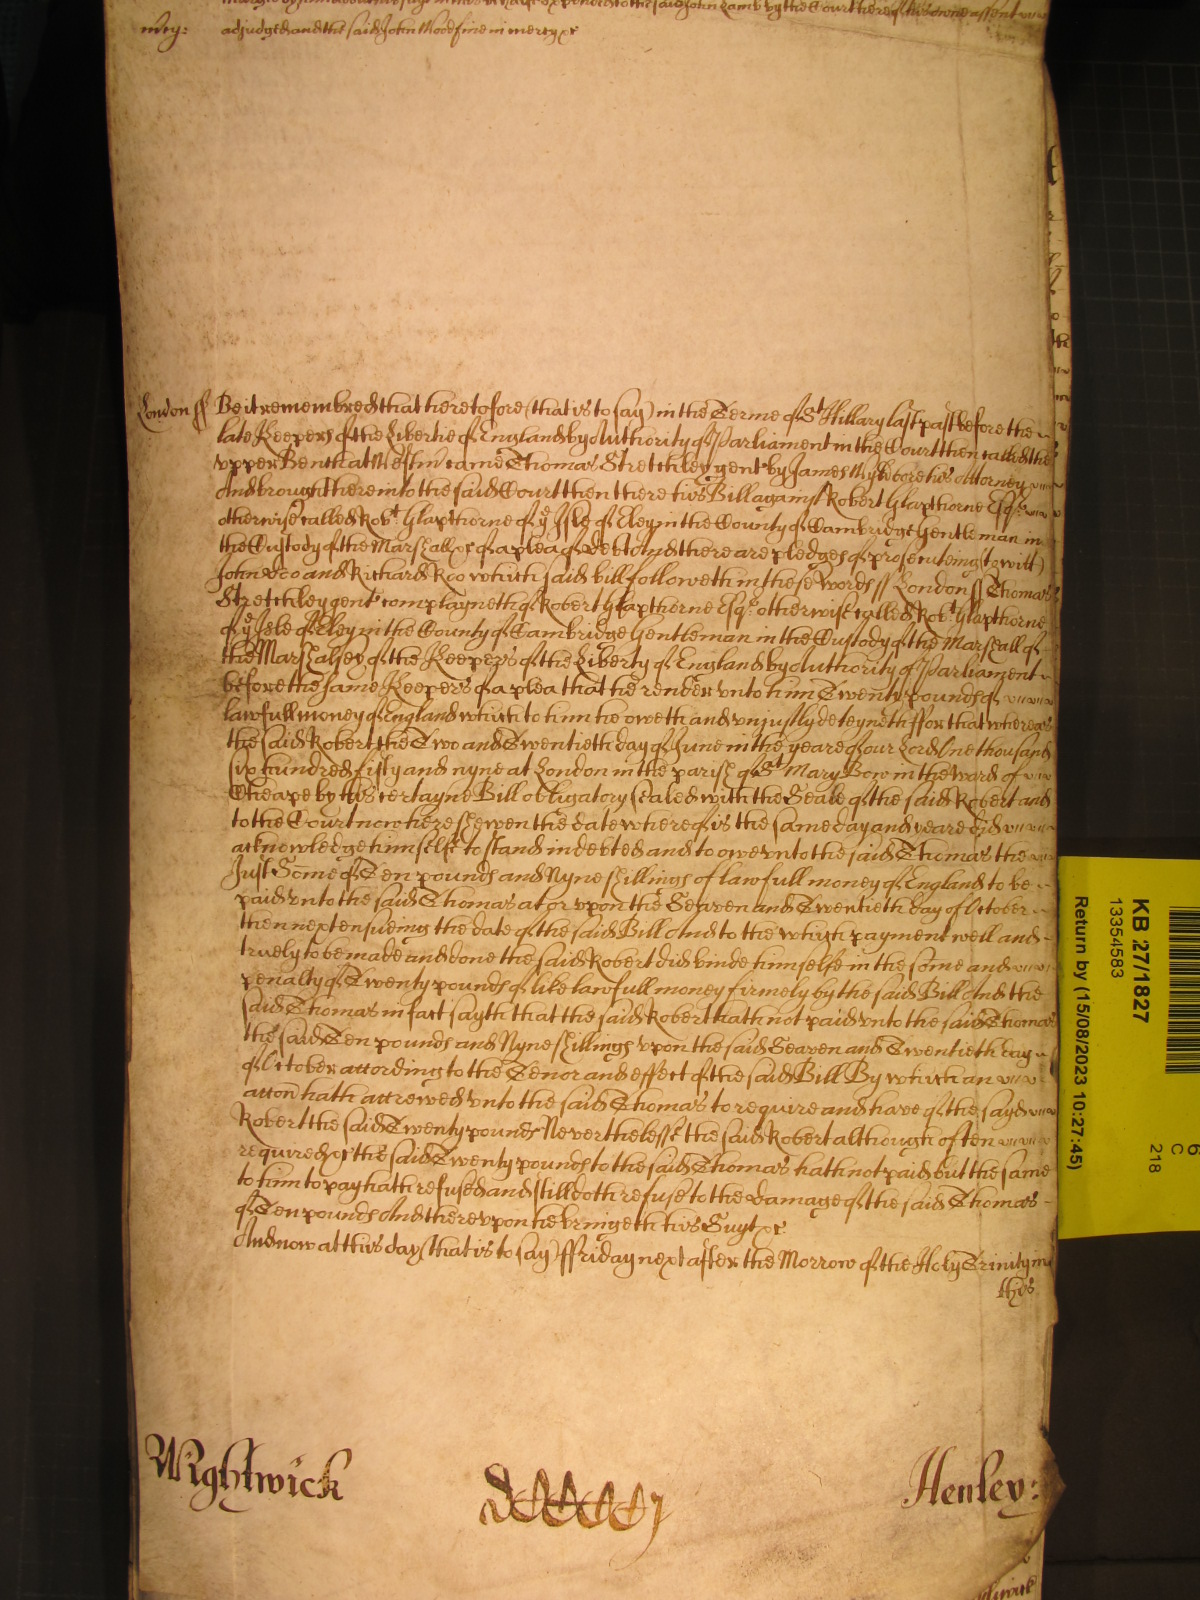 to the said John Lamb by the Court here of his owne assent
mcy: adjudged and the said John Moodfine in mercy &c
London ss Be it remembred that heretofore (that is to say) in the Terme of St Hillary last past before the
late Keepers of the Libertie of England by Authority of Parliament in the Court then called the
upper Bench at Westmr came Thomas Stretchley gent by James Mylbore his Attorney
And brought here into the said Court then there his Bill against Robert Glapthorne Esqr.
otherwise called Robt. Glapthorne of ye Isle of Eley in the County of Cambridge Gentleman in
the Custody of the Marshall &c of a plea of debt And there are pledges of prosecuteing (to witt)
John Doo and Richard Roo which said bill followeth in these words ss London ss Thomas
Stretchley gent complayneth of Robert Glapthorne Esqr. otherwise called Robt. Glapthorne
of ye Isle of Eley in the County of Cambridge Gentleman in the Custody of the Marshall of
the Marshalsey of the Keepers of the Liberty of England by Authority of Parliament
before the same Keepers of a plea that he render unto him Twenty pounds of
lawfull money of England which to him he oweth and unjustly deteyneth ffor that whereas
the said Robert the Two and Twentieth day of June in the yeare of our Lord One thousand
six hundred fifty and nyne at London in the parish of St Mary Bow in the ward of
Cheape by his certayne Bill obligatory sealed with the Seale of the said Robert and
to the Court now here shewen the date whereof is the same day and yeare did
acknowledge himselfe to stand indebted and to owe unto the said Thomas the
Just Some of Ten pounds and Nyne shillings of lawfull money of England to be
paid unto the said Thomas at or upon the Seaven and Twentieth day of October
then next ensueing the date of the said Bill And to the which payment well and
truely to be made and done the said Robert did binde himselfe in the some and
penalty of Twenty pounds of like lawfull money firmely by the said Bill And the
said Thomas in fact sayth that the said Robert hath not paid unto the said Thomas
the said Ten pounds and Nyne shillings upon the said Seaven and Twentieth day
of October according to the Tenor and effect of the said Bill By which an
accon hath accrewed unto the said Thomas to require and have of the sayd
Robert the said Twenty pounds Neverthelesse the said Robert although often
required of the said Twenty pounds to the said Thomas hath not paid but the same
to him to pay hath refused and still doth refuse to the damage of the said Thomas
of Ten pounds And thereupon he bringeth his Suyt &c
And now at this day (that is to say) ffriday next after the Morrow of the Holy Trinity in
this
Wightwick
Henley:
KB 27/1827
13354583
Return by (15/08/2023 10:27:45)
6
C
218